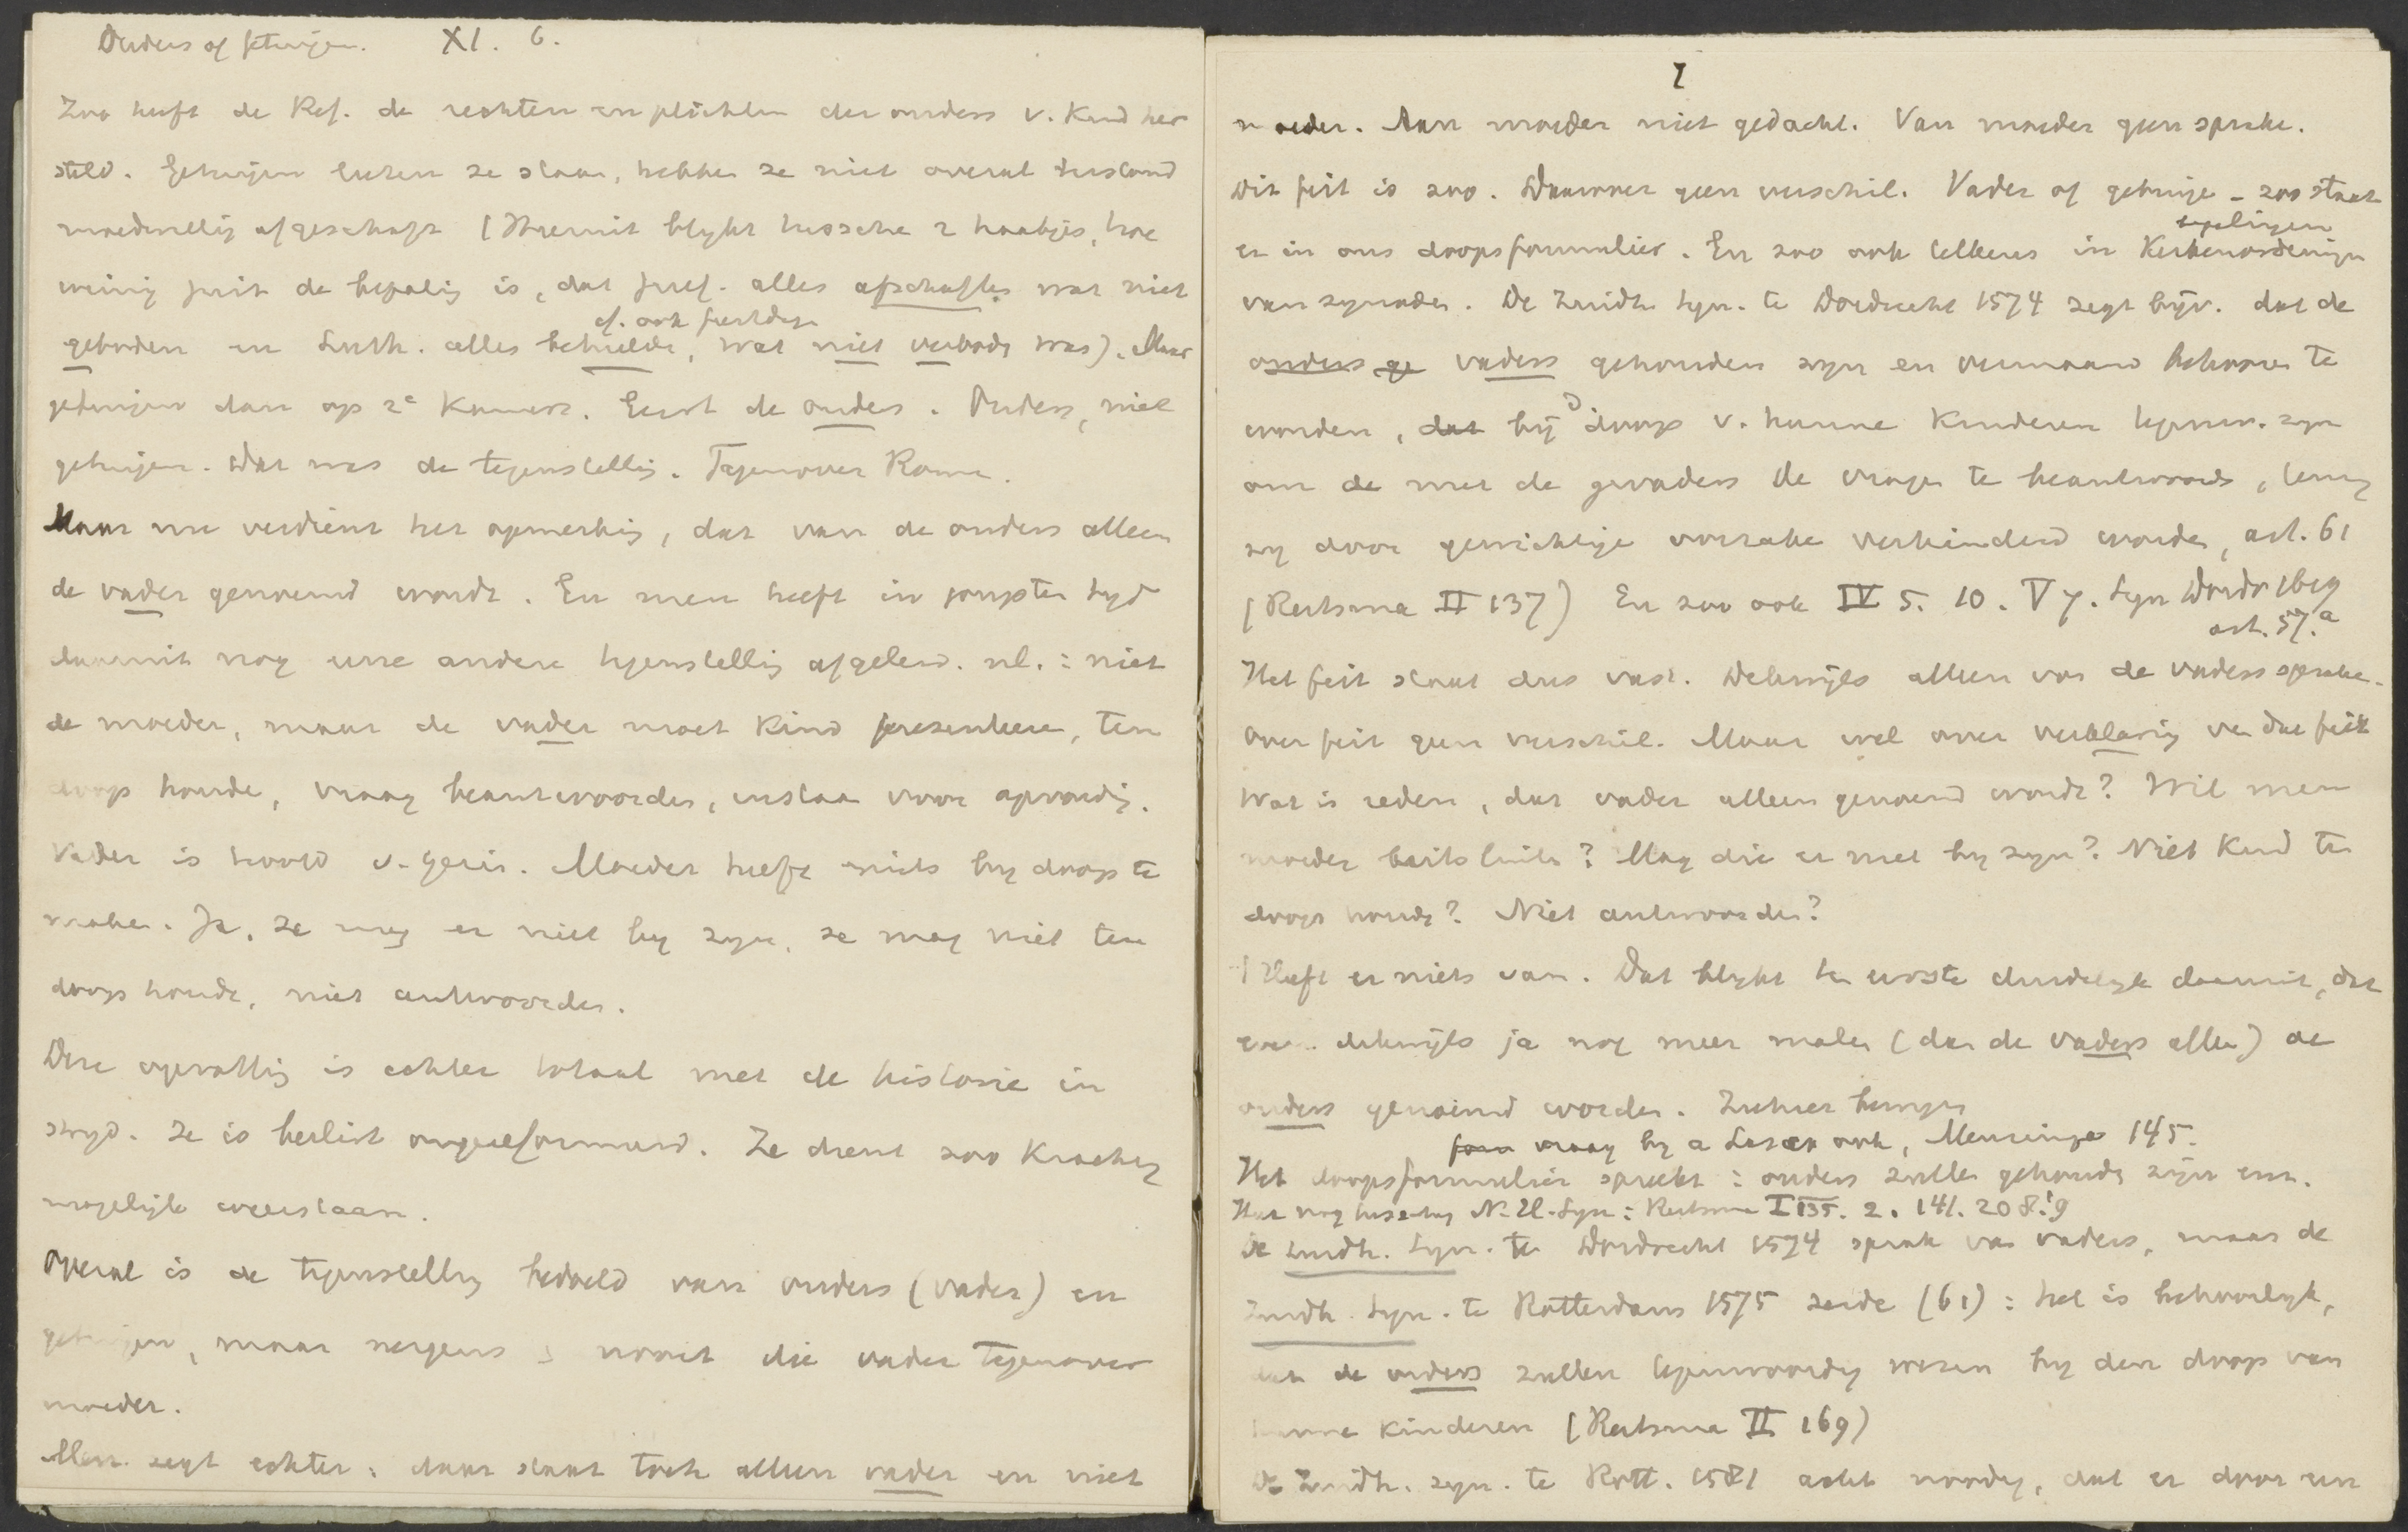 Ouders of getuigen. XI. 6.
Zoo heeft de Ref. de rechten en plichten der ouders v. Kind her
steld. Getuigen lieten ze staan, hebben ze niet overal terstond
moedwillig afgeschaft (Hieruit blykt tusschen 2 haakjes, hoe
weinig juist de bepaling is, dat geref. alles afschaften wat niet
cf. ook feestdagen
geboden en Luth. alles behielden, wat niet verboden was). Maar
getuigen dan op 2e Kamer. Eerst de ouders. Ouders, niet
getuigen. Dat was de tegenstelling. Tegenover Rome.
Maar nu verdient het opmerking, dat van de ouders alleen
de vader genoemd wordt. En men heeft in jongsten tyd
daaruit nog eene andere tegenstelling afgeleid. nl. : niet
de moeder, maar de vader moet Kind presenteeren, ten
doop houden, vraag beantwoorden, instaan voor opvoeding.
Vader is hoofd v. gezin. Moeder heeft niets by doop te
maken. Ja, ze mag er niet by zyn, ze mag niet ten
doop houden, niet antwoorden.
Deze opvatting is echter totaal met de historie in
stryd. Ze is beslist ongereformeerd. Ze dient zoo Krachtig
mogelijk weerstaan.
Overal is de tegenstelling bedoeld van ouders (vader) en
getuigen, maar nergens nooit die vader tegenover
moeder.
Men zegt echter : daar staat toch alleen vader en niet
7
moeder. Aan moeder niet gedacht. Van moeder geen sprake.
Dit feit is zoo. Daarover geen verschil. Vader of getuige - zoo staat
er in ons doopsformulier. En zoo ook telkens in Kerkenordeningen
bepalingen
van synoden. De Zuidh. Syn. te Dordrecht 1574 zegt bijv. dat de
ouders ge vaders gehouden zyn en vermaand behooren te
worden, dat bij D doop v. hunne Kinderen tegenw. zyn
om de met de gevaders de vragen te beantwoorden, tenzy
zy door gewichtige oorzake verhinderd worden, art. 61
(Reitsma II 137) En zoo ook IV 5. 10. V 7. Syn Dordr 1619
art. 57.a
Het feit staat dus vast. Dekwijls alleen van de vaders sprake.
Over feit geen verschil. Maar wel over verklaring van dat feit
Wat is reden, dat vader alleen genoemd wordt? Wil men
moeder buitsluiten? Mag die er niet by zyn? Niet Kind ten
doop houden? Niet antwoorden?
Heeft er niets van. Dat blykt ten eerste duidelyk daaruit, dat
even dekwijls ja nog meer malen (dan de vaders alleen) de
ouders genoemd worden. Ziehier bewijzen
form vraag by a Lasco ook, Mensinga 145.
Het doopsformulier spreekt : ouders zullen gehouden zijn enz.
N. H. Syn : Reitsma I 135. 2. 141. 208. 9
De Zuidh. Syn. te Dordrecht 1574 sprak van vaders, maar de
Zuidh. Syn. te Rotterdam 1575 zeide (61) : het is behoorlyk,
dat de ouders zullen tegenwoordig wezen by den doop van
hunne Kinderen (Reitsma II 169)
De Zuidh. syn. te Rott. 1581 acht noodig, dat er door een